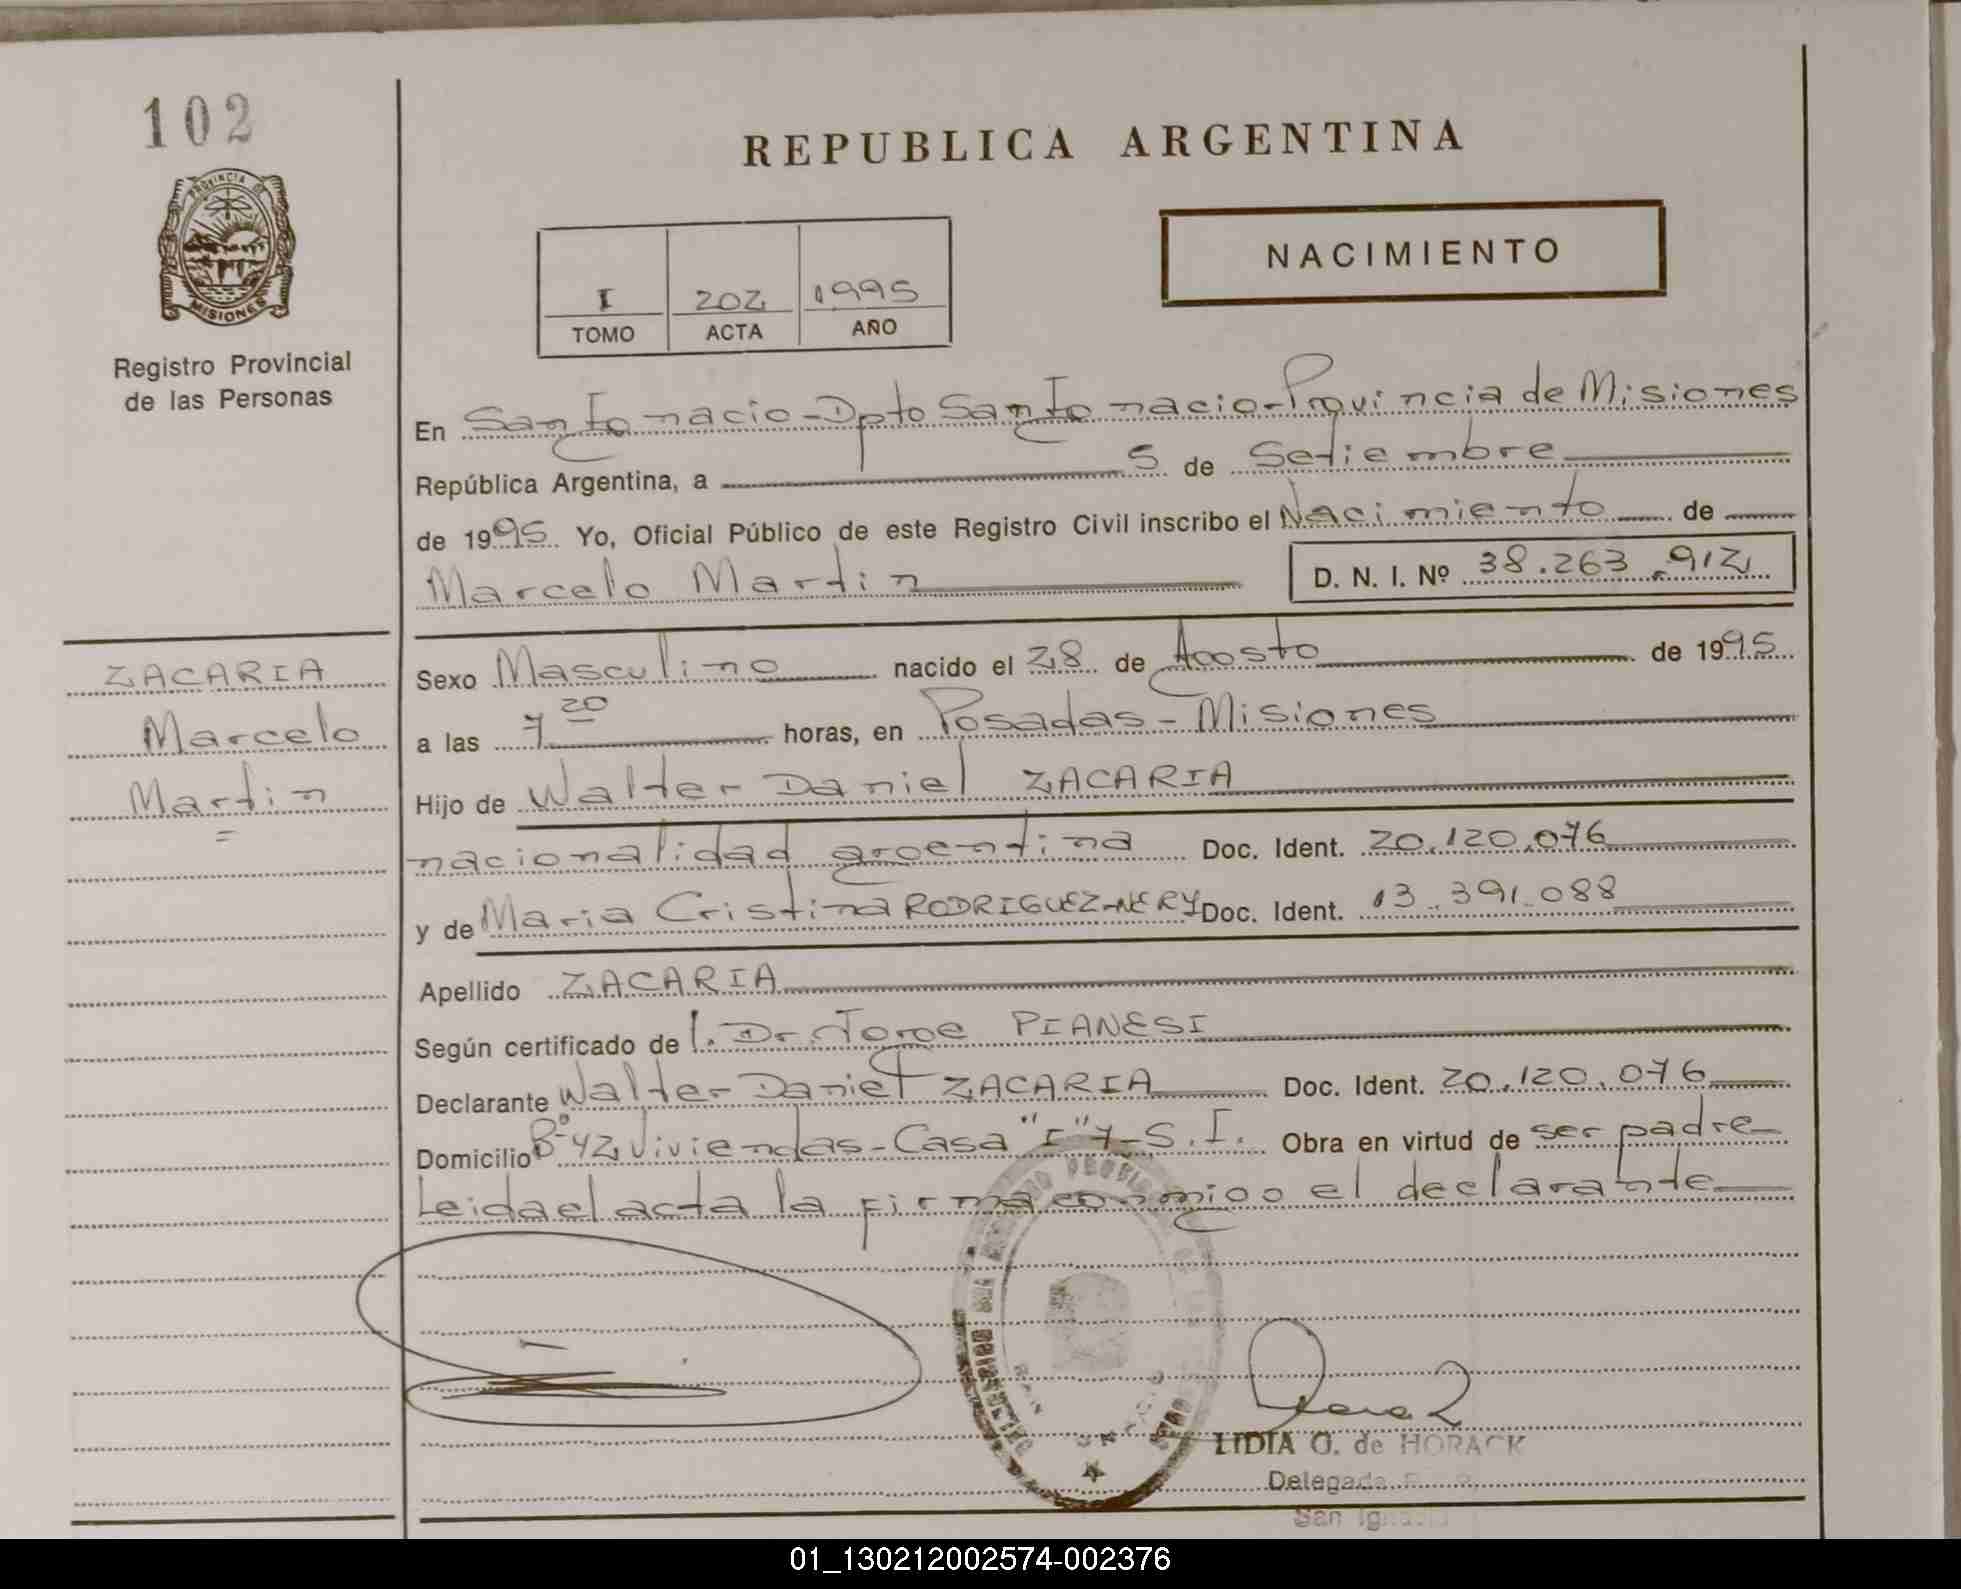 102
PROVINCIA DE
MISIONES
Registro Provincial
de las Personas
REPUBLICA ARGENTINA
NACIMIENTO
I 202 1995
TOMO ACTA AÑO
En San Ignacio - Dpto San Ignacio - Provincia de Misiones
República Argentina, a 5 de Setiembre
de 1995. Yo, Oficial Público de este Registro Civil inscribo el Nacimiento de
Marcelo Martin D. N. I. Nº 38.263.912
ZACARIA
Marcelo
Martin
Sexo Masculino nacido el 28 de Agosto de 1995
a las 7 20 horas, en Posadas - Misiones
Hijo de Walter Daniel ZACARIA
nacionalidad argentina Doc. Ident. 20.120.076
y de Maria Cristina RODRIGUEZ-NERY Doc. Ident. 13.391.088
Apellido ZACARIA
Según certificado de l. Dr. Jorge PIANESI
Declarante Walter Daniel ZACARIA Doc. Ident. 20.120.076
Domicilio Bº 42 Viviendas - Casa "I" 7 - S.I. Obra en virtud de ser padre
Leida el acta la firma conmigo el declarante
LIDIA G. de HORACK
Delegada
San Ignacio
01_130212002574-002376